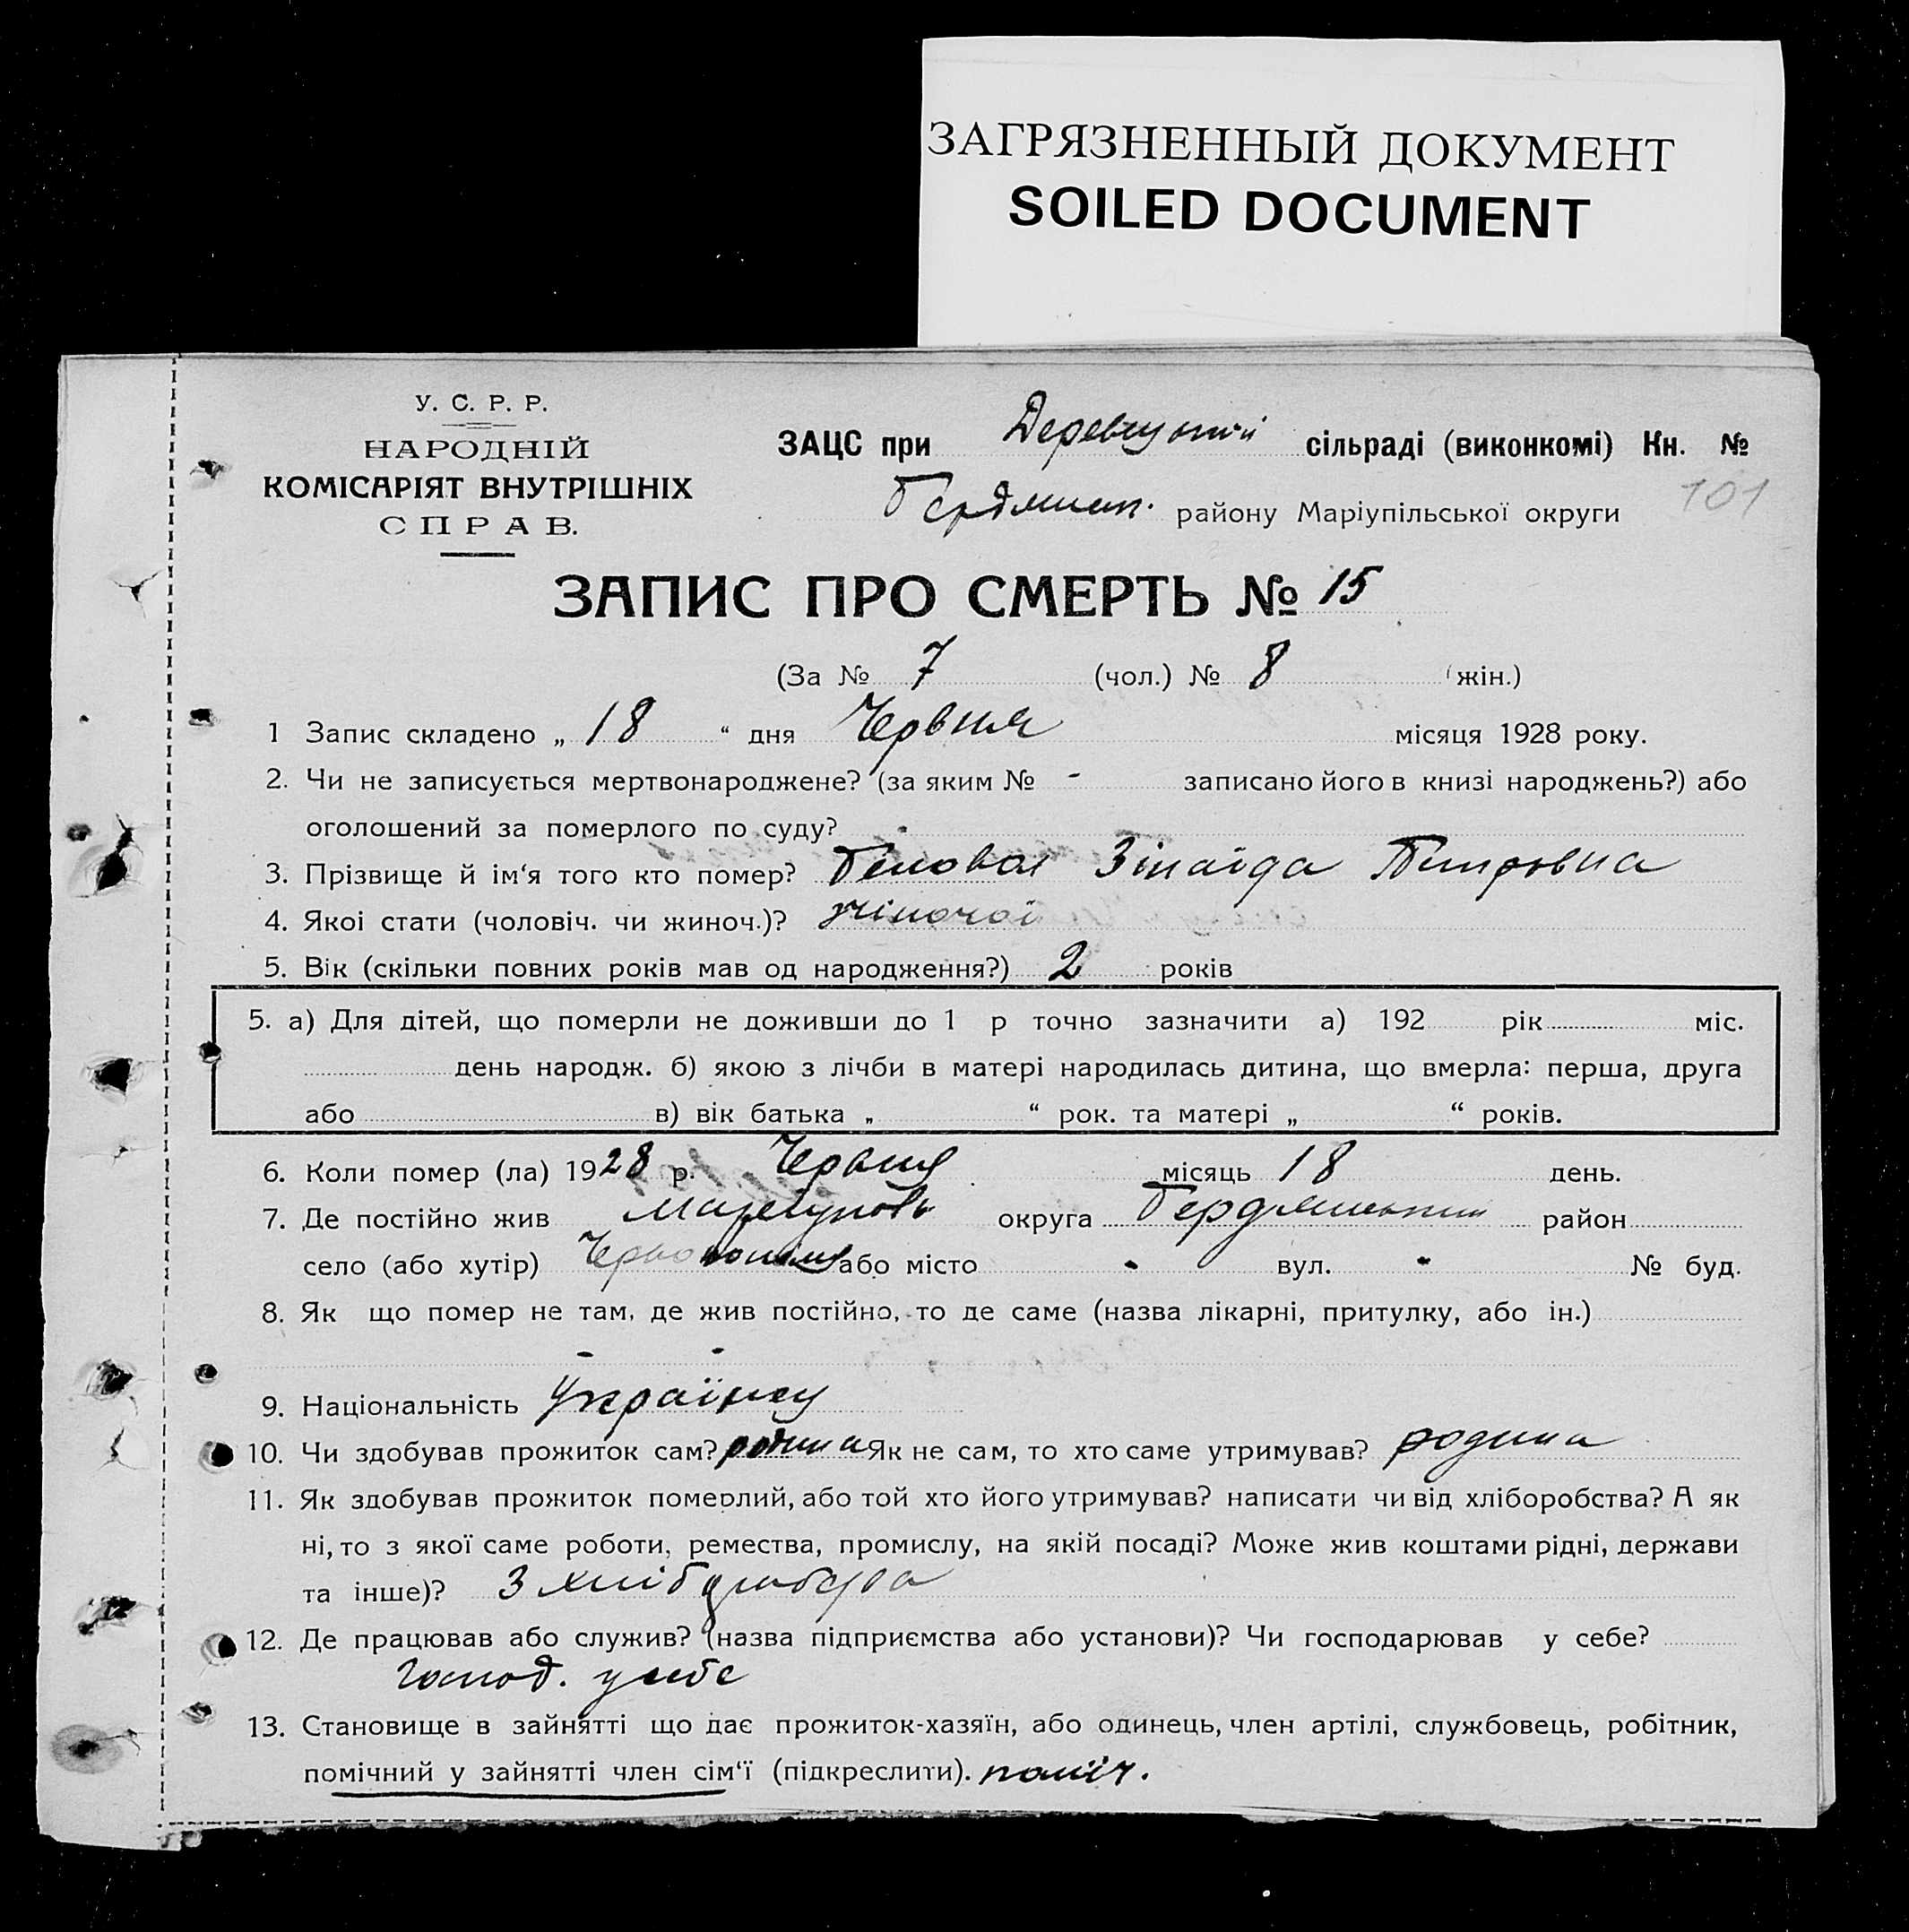 ЗАГРЯЗНЕННЫЙ ДОКУМЕНТ
SOILED DOCUMENT
У. С. Р. Р.
НАРОДНІЙ
КОМІСАРІЯТ ВНУТРІШНІХ
СПРАВ.
ЗАЦС при сільраді (виконкомі) Кн. №
району Маріупільської округи 101
ЗАПИС ПРО СМЕРТЬ № 15
(За № 7 (чол.) № 8 (жін.)
1 Запис складено „ 18 “ дня Червня місяця 1928 року.
2. Чи не записується мертвонароджене? (за яким № - записано його в книзі народжень?) або
оголошений за померлого по суду?
3. Прізвище й ім‘я того кто помер? Зінаїда Петровна
4. Якоі стати (чоловіч. чи жиноч.)? жіночої
5. Вік (скільки повних років мав од народження?) 2 років
5. а) Для дітей, що померли не доживши до 1 р точно зазначити а) 192 рік міс.
день народж. б) якою з лічби в матері народилась дитина, що вмерла: перша, друга
або в) вік батька „ “ рок. та матері „ “ років.
6. Коли помер (ла) 1928 р. Червня місяць 18 день.
7. Де постійно жив округа Бердянський район
село (або хутір) або місто - вул. - № буд.
8. Як що помер не там, де жив постійно, то де саме (назва лікарні, притулку, або ін.)
- -
9. Національність Українка
10. Чи здобував прожиток сам? родина Як не сам, то хто саме утримував? родина
11. Як здобував прожиток померлий, або той хто його утримував? написати чи від хліборобства? А як
ні, то з якої саме роботи, ремества, промислу, на якій посаді? Може жив коштами рідні, держави
та інше)? З хліборобства
12. Де працював або служив? (назва підприємства або установи)? Чи господарював у себе?
Господ. у себе
13. Становище в зайнятті що дає прожиток-хазяїн, або одинець, член артілі, службовець, робітник,
помічний у зайнятті член сім‘ї (підкреслити). поміч.